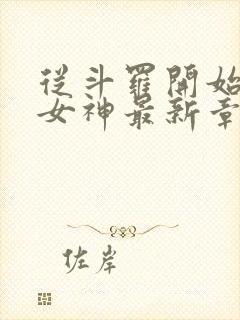 從斗羅開始
女神最新章
佐岸